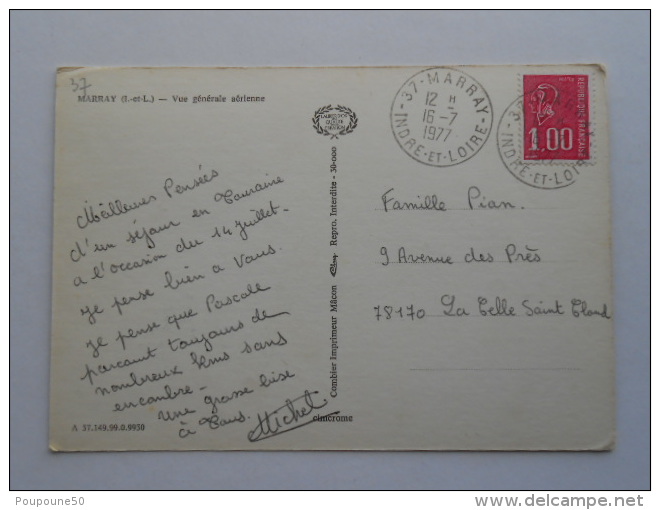 37
MARRAY (I.-et-L.) — Vue générale aérienne
Meilleures Pensées
d'un séjour en Touraine
a l'occasion du 14 Juillet -
Je pense bien a Vous.
Je pense que Pascale
parcourt toujours de
nombreux kms sans
encombre -
Une grosse bise
à Tous.
Michel
A 37.149.99.0.9930
cimcrome
Combier Imprimeur Mâcon
Repro. Interdite - 30-000
37 - MARRAY
12 H
16 - 7
1977
INDRE-ET-LOIRE
REPUBLIQUE FRANÇAISE
1,00
INDRE-ET-LOIRE
Famille Pian.
9 Avenue des Près
78170 La Celle Saint Cloud
Poupoune50
www.delcampe.net